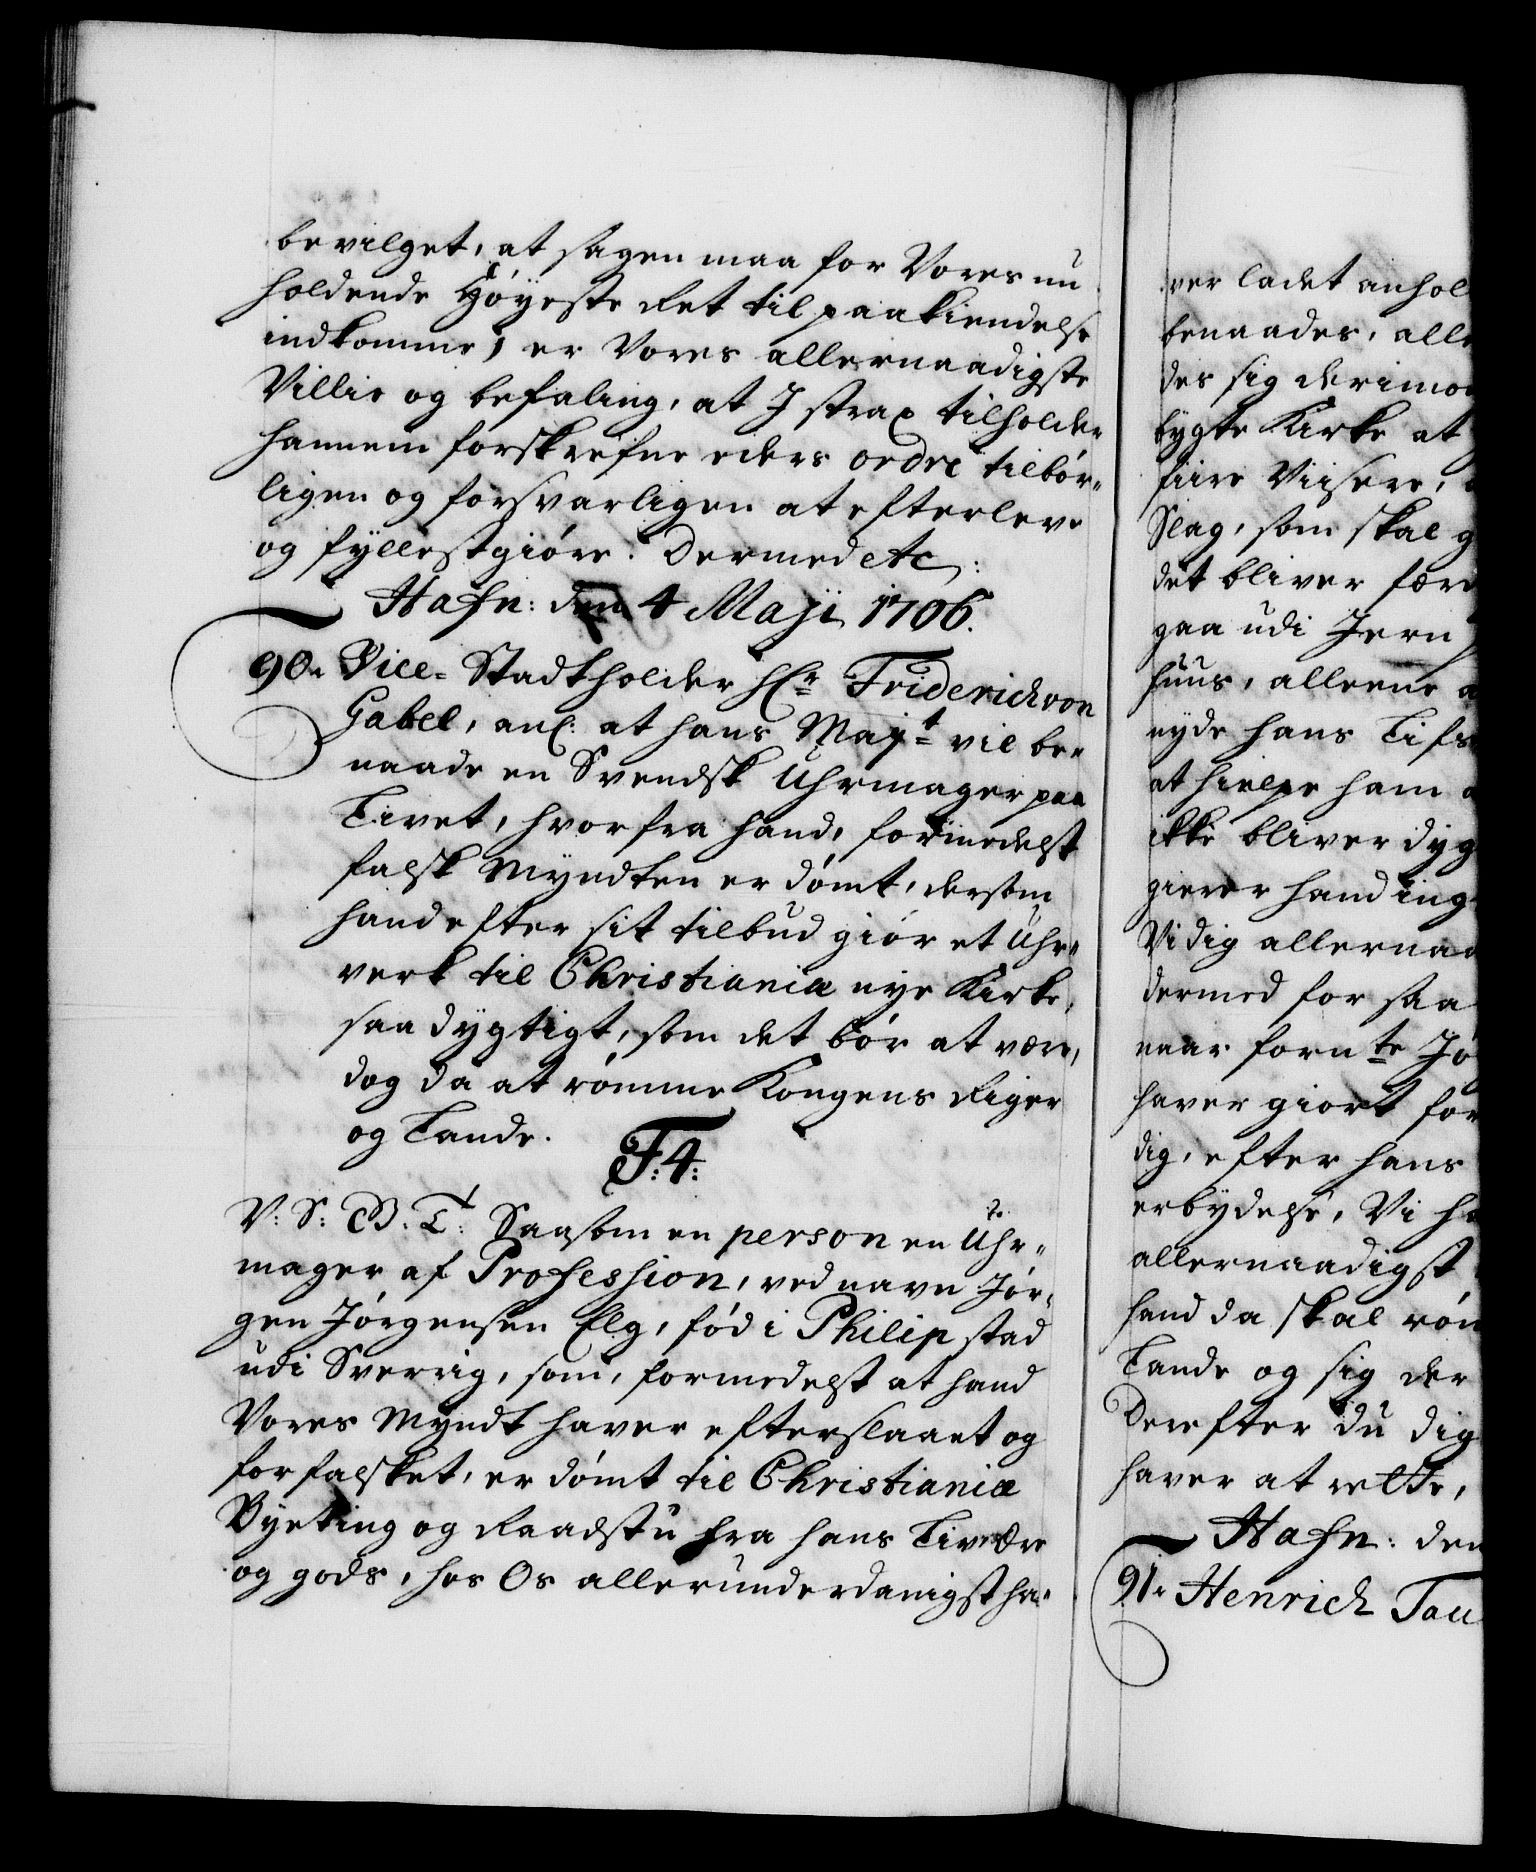 bevilget, at sagen maa for Vores nu
holdende Höyeste Ret til paakiendelse
indkomme, er Vores allernaadigste
Villie og befaling, at I strax tilholder
hannem forskrefne eders ordre tilbör-
ligen og forsvarligen at efterleve
og fyllestgiöre. Dermed etc:
Hafn: den 4 Maji 1706.
90. Vice-Stadtholder Hr Friderich von
Gabel, anl: at hans Mayt vil be-
naade en Svendsk Uhrmager paa
Livet, hvorfra hand, formedelst
falsk Myndten er dömt, dersom
hand efter sit tilbud giör et Uhr-
verk til Christianiæ nye Kirke,
saa dygtigt, som det bör at være,
dog da at römme Kongens Riger
og Lande.
F:4:
V: S: G. T: Saasom en person en Uhr-
mager af Profession, ved navn Jör-
gen Jörgensen Elg, föd i Philipstad
udi Sverrig, som, formedelst at hand
Vores Myndt haver efterslaaet og
forfalsket, er dömt til Christianiæ
Byeting og Raadstu fra hans Liv Ære
og gods, hos Os allerunderdanigst ha-
ver ladet anhol
benaades, alle
des sig derimo
bygte Kirke at
fiire Viisere,
Slag, som skal g
det bliver fær
gaa udi Jern
huus, alleene a
nyde hans Lifs
at hielpe ham
ikke bliver dyg
giever hand ing
Vi dig allernaa
dermed for saa
naar fornte Jö
haver giort for
dig, efter hans
erbydelse, Vi ha
allernaadigst
hand da skal röm
Lande og sig der
Derefter du dig
haver at rette,
Hafn: den
91. Henrich Tau